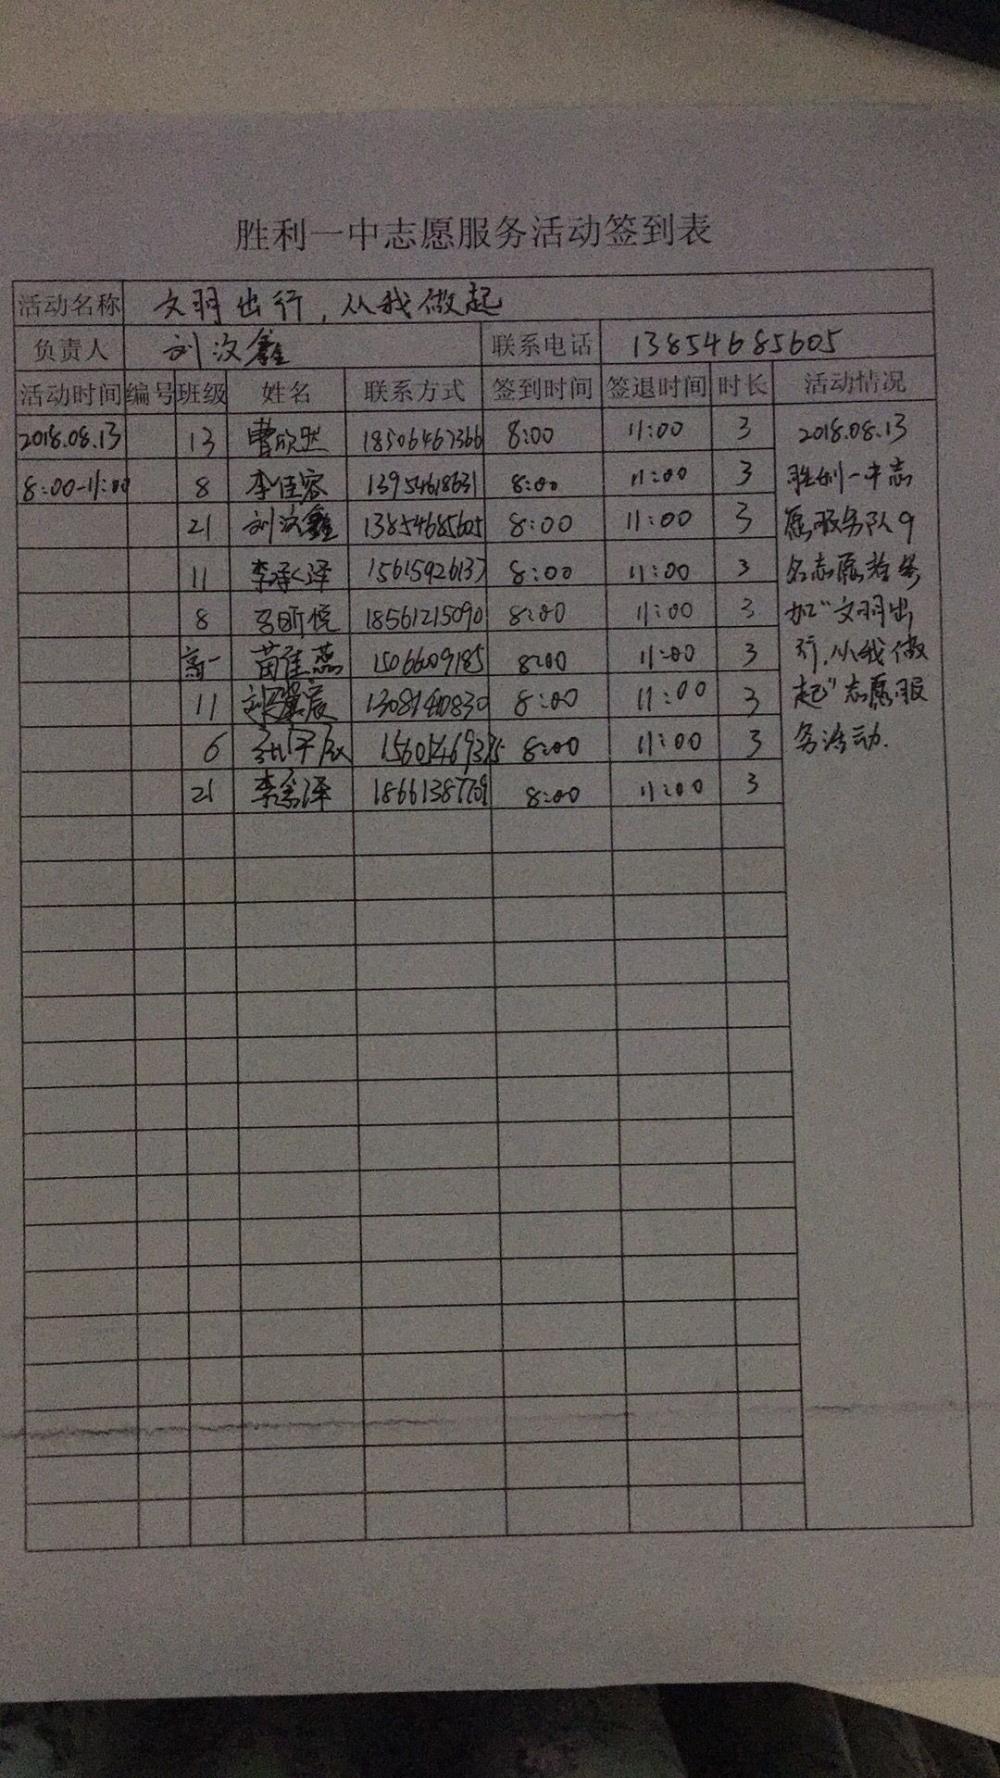 胜利一中志愿服务活动签到表
活动名称 文明出行,从我做起
负责人 刘汶鑫 联系电话 13854685605
活动时间 编号 班级 姓名 联系方式 签到时间 签退时间 时长 活动情况
2018.08.13 13 曹欣然 18506467366 8:00 11:00 3 2018.08.13
8:00-11:00 8 李佳容 13954618631 8:00 11:00 3 胜利一中志
21 刘汶鑫 13854685605 8:00 11:00 3 愿服务队9
11 李承泽 15615926137 8:00 11:00 3 名志愿者参
8 马昕悦 18561215090 8:00 11:00 3 加"文明出
高一 苗佳燕 1506609185 8:00 11:00 3 行,从我做
11 8:00 11:00 3 起"志愿服
6 8:00 11:00 3 务活动.
21 18661387709 8:00 11:00 3